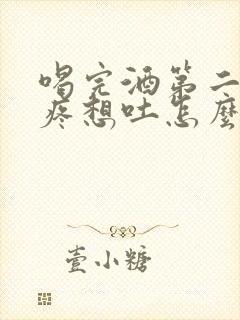 喝完酒第二
疼想吐怎麼
壹小糖